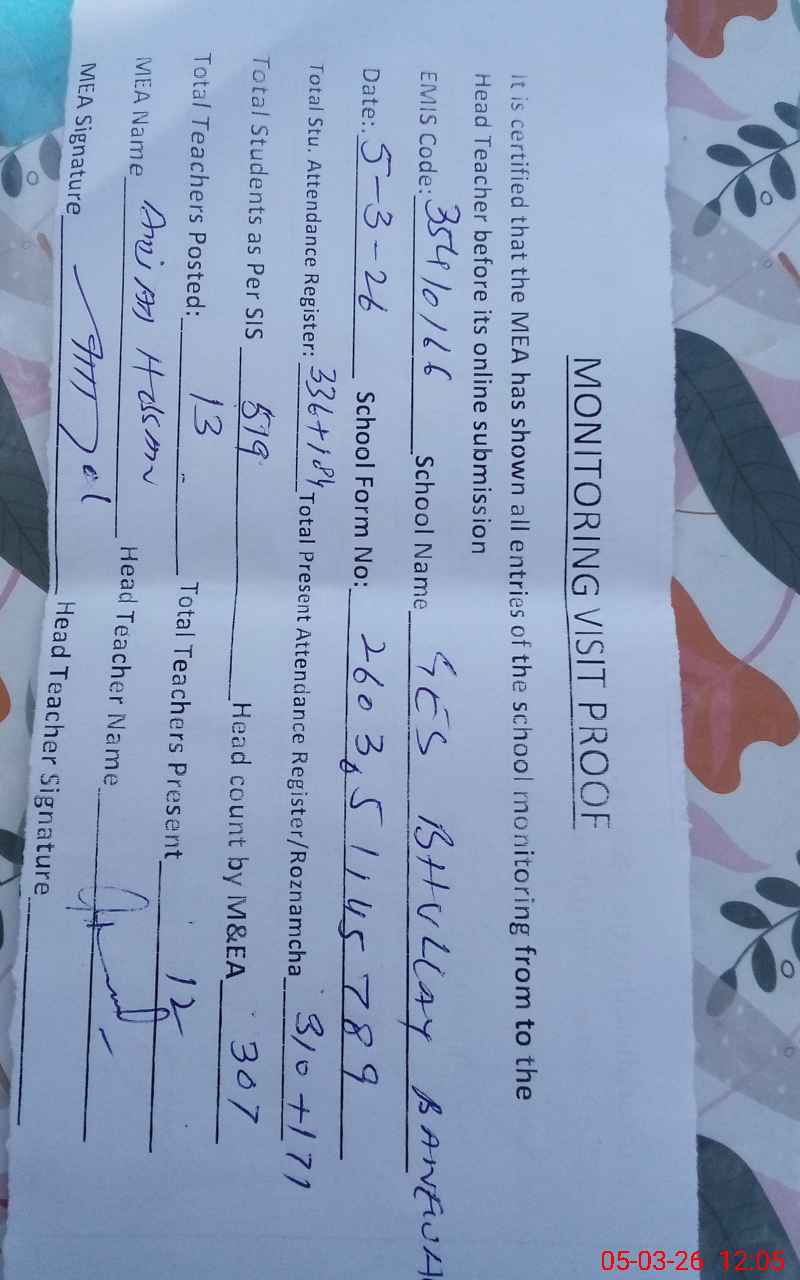 MONITORING VISIT PROOF
It is certified that the MEA has shown all entries of the school monitoring from to the
Head Teacher before its online submission
EMIS Code: 35410166 School Name GES BHULLAY
Date:. 5-3-26 School Form No: 2603,51145789
Total Stu. Attendance Register: 336+184 Total Present Attendance Register/Roznamcha 310+171
Total Students as Per SIS 519 Head count by M&EA 307
Total Teachers Posted: 13 Total Teachers Present 12
MEA Name Hassan Head Teacher Name
MEA Signature Head Teacher Signature
05-03-26 12:05